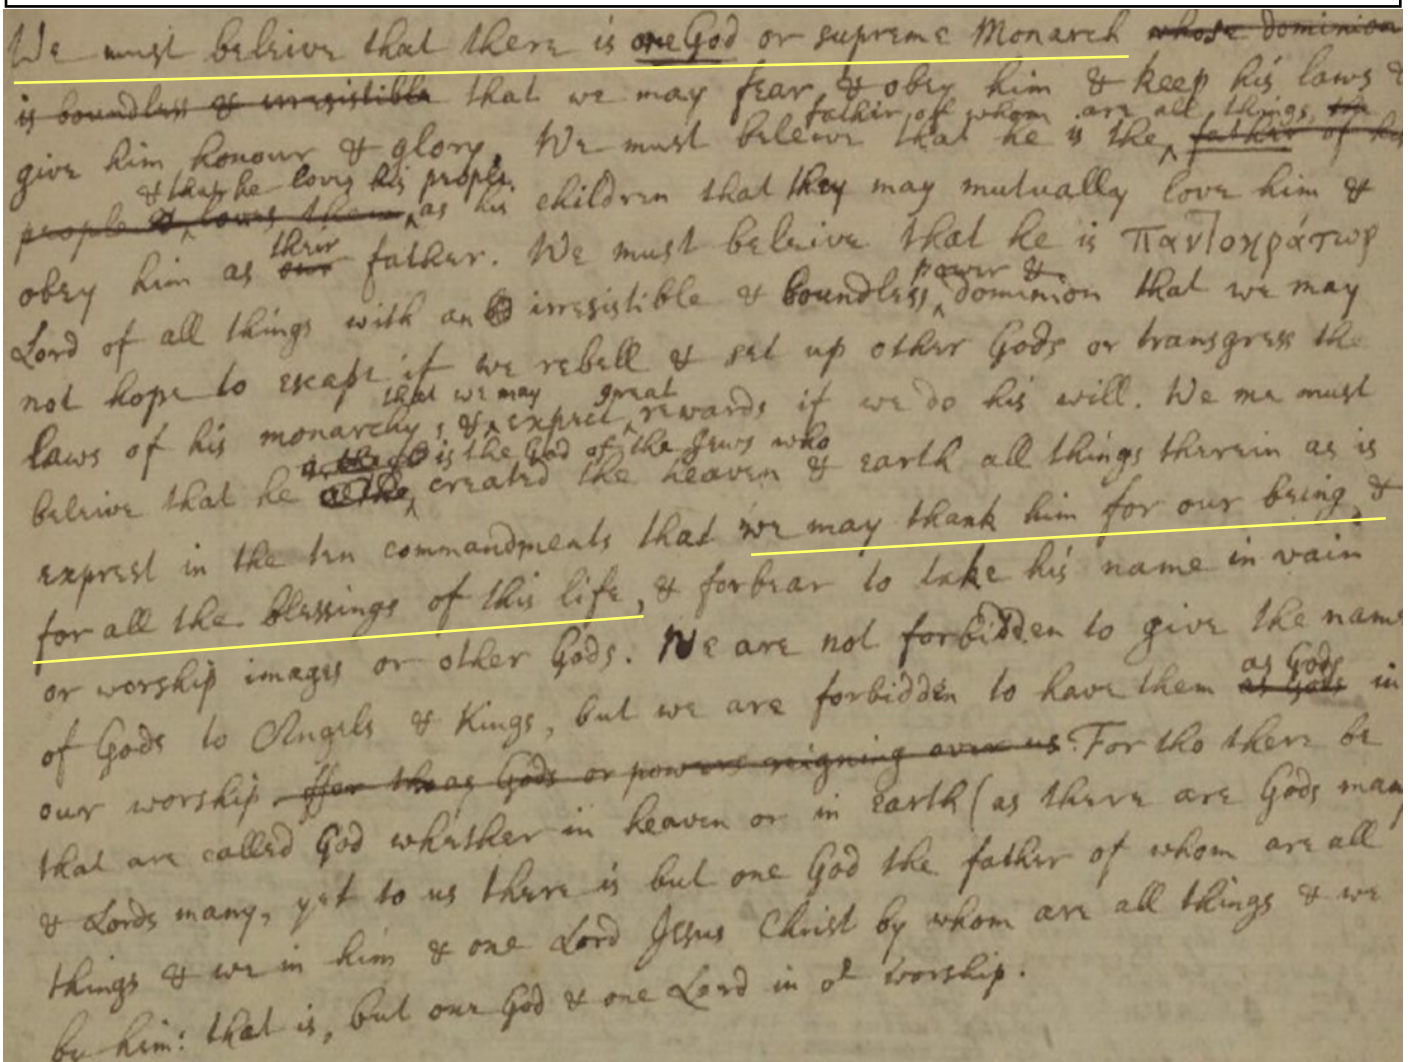 We must beleive that there is one God or supreme Monarch whose dominion
is boundless & irresistible that we may fear & obey him & keep his laws &
father of whom are all things, the
give him honour & glory. We must beleive that he is the father of his
& that he loves his people
people & loves them as his children that they may mutually love him &
obey him as our their father. We must beleive that he is παντοκράτωρ
power &
Lord of all things with an irresistible & boundless dominion that we may
not hope to escape if we rebell & set up other Gods or transgress the
that we may great
laws of his monarchy, & expect rewards if we do his will. We me must
is the God of the Jews who
beleive that he created the heaven & earth all things therein as is
exprest in the ten commandments that we may thank him for our being &
for all the blessings of this life, & forbear to take his name in vain
or worship images or other Gods. We are not forbidden to give the name
as Gods
of Gods to Angels & Kings, but we are forbidden to have them as Gods in
our worship. ffor tho as Gods or powers reigning over us. For tho there be
that are called God whether in heaven or in earth (as there are Gods many
& Lords many, yet to us there is but one God the father of whom are all
things & we in him & one Lord Jesus Christ by whom are all things & we
by him: that is, but one God & one Lord in oʳ worship.